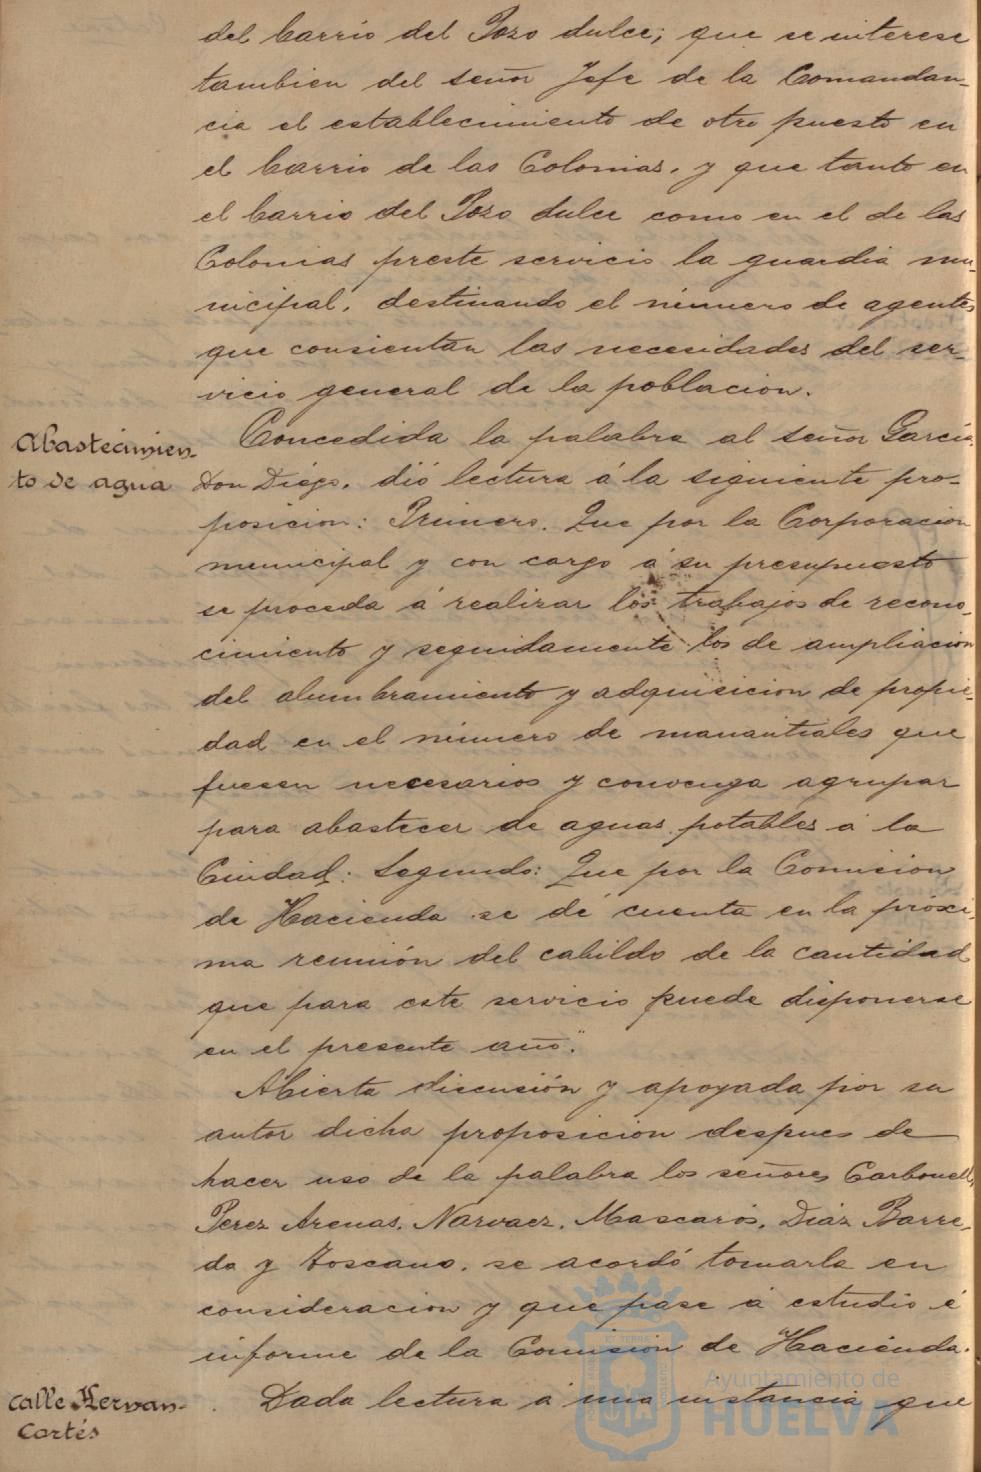 del barrio del Pozo dulce; que se interese
tambien del señor Jefe de la Comandan-
cia el establecimiento de otro puesto en
el barrio de las Colonias, y que tanto en
el barrio del Pozo dulce como en el de las
Colonias preste servicio la guardia mu-
nicipal, destinando el número de agentes
que consientan las necesidades del ser-
vicio general de la poblacion.
Abastecimien-
to de agua
Concedida la palabra al señor García
Don Diego, dió lectura á la siguiente pro-
posicion: Primero. Que por la Corporacion
municipal y con cargo á su presupuesto
se proceda á realizar los trabajos de recono-
cimiento y seguidamente los de ampliacion
del alumbramiento y adquisicion de propie-
dad en el número de manantiales que
fuesen necesarios y convenga agrupar
para abastecer de aguas potables á la
Ciudad: Segundo: Que por la Comision
de Hacienda se dé cuenta en la próxi-
ma reunión del cabildo de la cantidad
que para este servicio puede disponerse
en el presente año."
Abierta discusión y apoyada por su
autor dicha proposicion despues de
hacer uso de la palabra los señores Carbonell,
Perez Arenas, Narvaez, Mascarós, Diáz Barre-
da y Toscano, se acordó tomarla en
consideracion y que pase á estudio é
informe de la Comision de Hacienda.
calle Hernan-
Cortés
Dada lectura á una instancia que
Ayuntamiento de
HUELVA